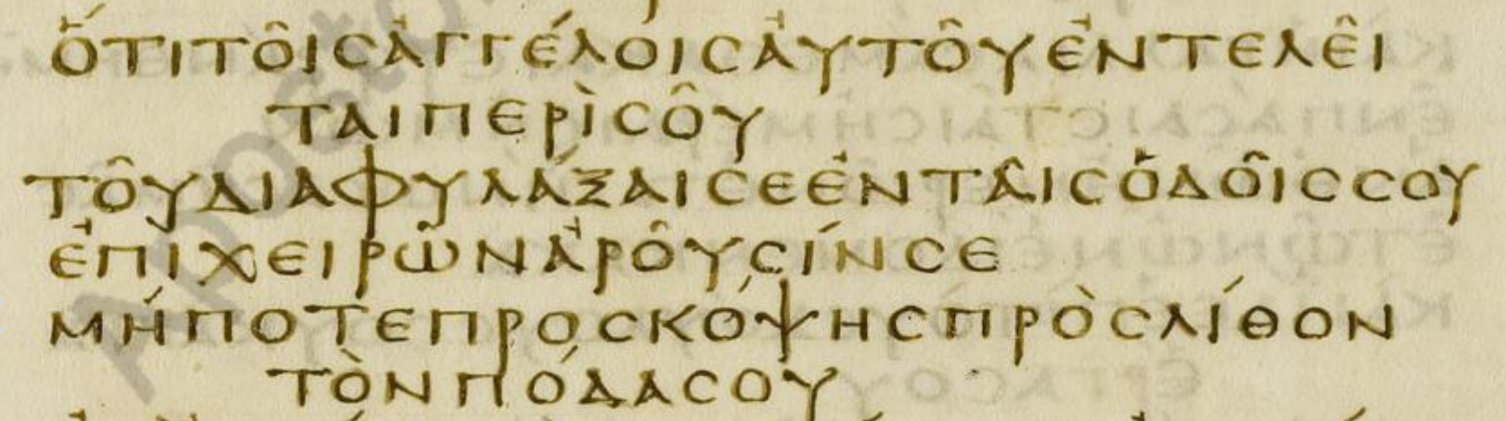 ὍΤΙΤΟ͂ΙϹἈΓΓΈΛΟΙϹἈΥΤΟ͂ΥἘΝΤΕΛΕ͂Ι
ΤΑΙΠΕΡῚϹΟ͂Υ
ΤΟ͂ΥΔΙΑΦΥΛΆΞΑΙϹΕἘΝΤΑ͂ΙϹὉΔΟ͂ΙϹϹΟΥ
ἘΠΙΧΕΙΡΩ͂ΝἈΡΟ͂ΥϹΊΝϹΕ
ΜΉΠΟΤΕΠΡΟϹΚΌΨΗϹΠΡῸϹΛΊΘΟΝ
ΤῸΝΠΌΔΑϹΟΥ